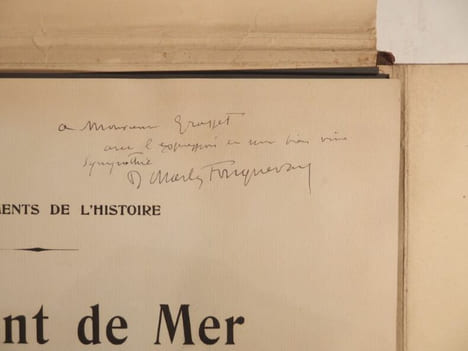 a Monsieur Grasset
avec l'expression en mon bien vive
Sympathie
Dr Charles Fouqueray
MENTS DE L'HISTOIRE
nt de Mer